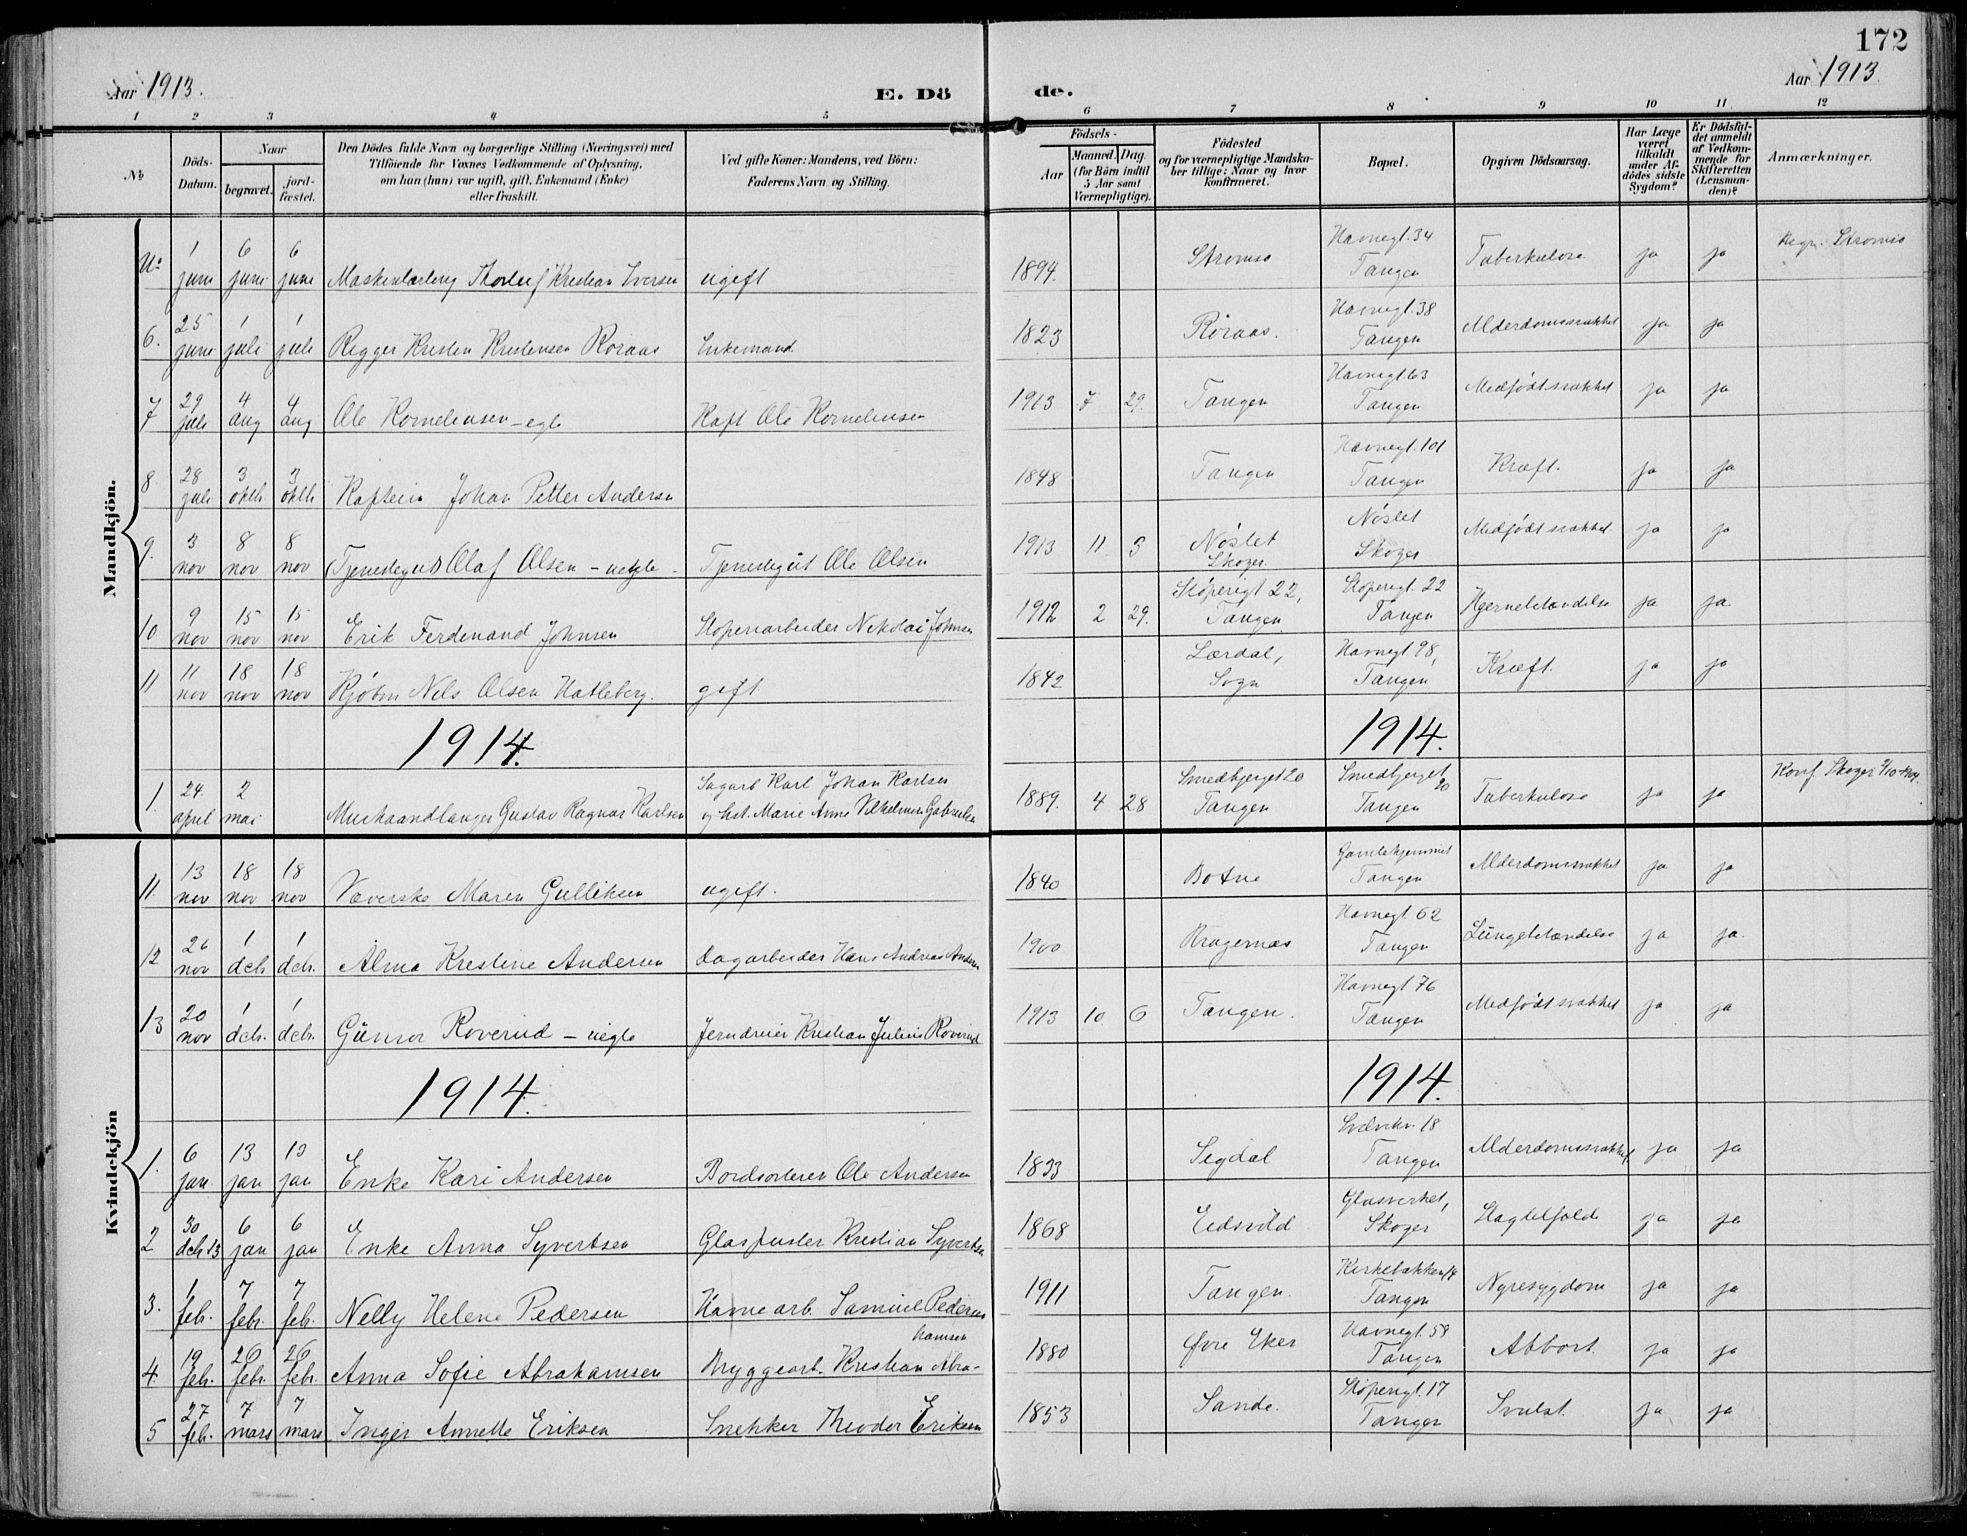 172
Aar 1913.
E. Dö
de.
Aar 1913
1 2 3 4 5 6 7 8 9 10 11 12
№
Döds-Datum.
Naar
begravet.
jord-fæstet.
Den Dödes fulde Navn og borgerlige Stilling (Næringsvei) med
Tilföiende for Voxnes Vedkommende af Oplysning,
om han (hun) var ugift, gift, Enkemand (Enke)
eller fraskilt.
Ved gifte Koner: Mandens, ved Börn:
Faderens Navn og Stilling.
Födsels-
Aar
Maaned. Dag.
(for Börn indtil
5 Aar samt
Værnepligtige).
Födested
og for værnepligtige Mandska-
ber tillige: Naar og hvor
konfirmeret.
Bopæl.
Opgiven Dödsaarsag.
Har Læge
været
tilkaldt
under Af-
dödes sidste
Sygdom?
Er Dödsfal-
det anmeldt
af Vedkom-
mende for
Skifteretten
(Lensman-
den)?
Anmærkninger.
Mandkjön.
1 juni 6 juni 6 juni Maskinlærling Thorleif Kristian Iversen ugift 1894. Strømsø Havnegt. 34 Tangen Tuberkulose ja ja Regn. Strømsø
6. 25 juni 1 juli 1 juli Rigger Kristen Kristensen Røraas Enkemand 1823 Røraas. Havnegt. 38 Tangen Alderdomssvakhet ja ja
7 29 juli 4 aug 4 aug Ole Korneliussen – egte Kapt Ole Korneliussen 1913 7 29. Tangen Havnegt 63 Tangen Medfødt svakhet ja ja
8 28 juli 3 oktb 3 oktb Kaptein Johan Petter Andersen 1848 Tangen Havnegt. 101 Tangen Kræft. ja ja
9. 3 nov 8 nov 8 nov (Tjenestegut) Olaf Olsen – uegte – Tjenestegut Ole Olsen 1913 11 3 Nøstet Skoger Nøstet Skoger Medfødt svakhet ja ja
10 9 nov 15 nov 15 nov Erik Ferdinand Johnsen Støperiarbeider Nikolai Johnsen 1912 2 29. Støperigt 22, Tangen Støperigt. 22 Tangen Hjernebetændelse ja ja.
11 11 nov 18 nov 18 nov Kjøbm Nils Olsen Hatleberg. gift 1842 Lærdal, Sogn Havnegt 98, Tangen Kræft. ja ja
1914. 1914.
1. 24 april 2 mai Murhaandlanger Gustav Ragnar Karlsen Sagarb Karl Johan Karlsen og hst. Marie Anne Vilhelmine Gabrielsen 1889. 4 28 Smedbjerget 20 Tangen Smedbjerget 20 Tangen Tuberkulose ja ja Konf Skoger
Kvindekjön
11 13 nov 18 nov 18 nov Væverske Maren Gulliksen ugift. 1840 Botne Gamlehjemmet Tangen Alderdomssvakhet ja ja
12 26 nov 1 dcb 1 dcb. Alma Kristine Andersen Dagarbeider Hans Andreas Andersen 1900 Bragernæs Havnegt 62 Tangen Lungebetændelse ja ja.
13 20 nov 1 dcb. 1 dcb. Gunvor Roverud – uegte Jerndreier Kristian Julius Roverud 1913 10 6 Tangen. Havnegt 76 Tangen Medfødt svakhet ja ja
1914. 1914.
1. 6 jan. 13 jan 13 jan Enke Kari Andersen Bordsorterer Ole Andersen 1833 Sigdal 18 Tangen Alderdomssvakhet ja ja
2 30 dcb 13 6 jan 6 jan Enke Anna Syvertsen Glaspuster Kristian Syvertsen 1868 Eidsvold Glasverket, Skoger Slagtilfælde ja ja
3. 1 febr. 7 febr. 7 feb. Nelly Helene Pedersen Havnearb. Samuel Pedersen 1911 Tangen. Kirkebakken 14 Tangen Nyresygdom ja ja
4. 19 feb. 26 febr 26 febr Anna Sofie Abrahamsen Bryggearb. Kristian Abra-hamsen 1880 Øvre Eker Havnegt. 58 Tangen Abbort. ja ja
5 27 feb. 7 mars 7 mars Inger Annette Eriksen Snekker Theodor Eriksen 1853 Sande. Støperigt. 17 Tangen Svulst. ja ja